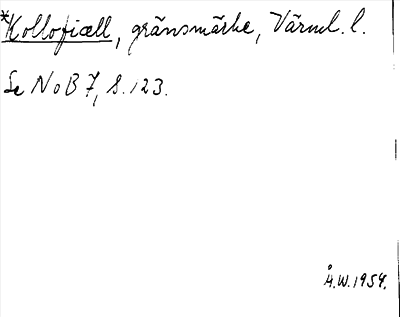 *Kollofiæll, gränsmärke, Värml. l.
Se NoB 7, S. 123.
Å.W. 1954.